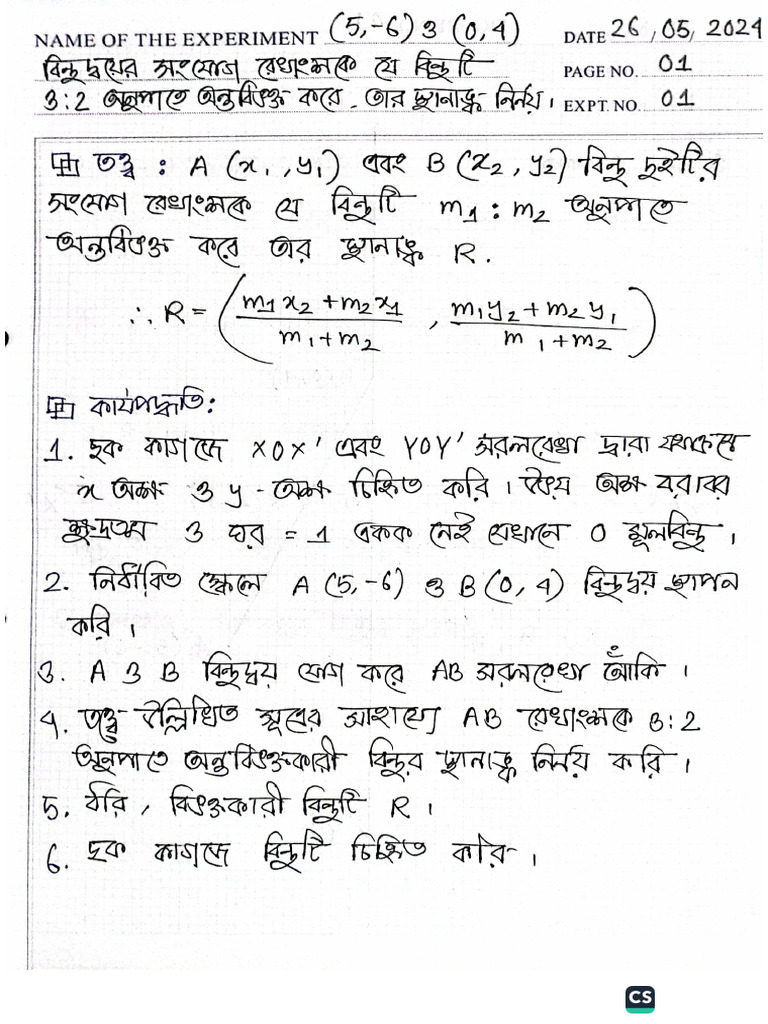 NAME OF THE EXPERIMENT (5,-6) ও (0, 4) DATE 26, 05, 2024
বিন্দুদ্বয়ের সংযোগ রেখাংশকে যে বিন্দুটি PAGE NO. 01
3:2 অনুপাতে অন্তর্বিভক্ত করে, তার স্থানাঙ্ক নির্ণয়। EXPT. NO. 01
তত্ত্ব : A (x₁, y₁) এবং B (x₂, y₂) বিন্দু দুইটির
সংযোগ রেখাংশকে যে বিন্দুটি m₁ : m₂ অনুপাতে
অন্তর্বিভক্ত করে তার স্থানাঙ্ক R.
∴ R = ( (m₁x₂ + m₂x₁)/(m₁ + m₂) , (m₁y₂ + m₂y₁)/(m₁ + m₂) )
কার্যপদ্ধতি:
1. ছক কাগজে XOX' এবং YOY' সরলরেখা দ্বারা যথাক্রমে
x অক্ষ ও y - অক্ষ চিহ্নিত করি। উভয় অক্ষ বরাবর
ক্ষুদ্রতম 3 ঘর = 1 একক নেই যেখানে O মূলবিন্দু।
2. নির্ধারিত স্কেলে A (5, -6) ও B (0, 4) বিন্দুদ্বয় স্থাপন
করি।
3. A ও B বিন্দুদ্বয় যোগ করে AB সরলরেখা আঁকি।
4. তত্ত্বে উল্লিখিত সূত্রের সাহায্যে AB রেখাংশকে 3:2
অনুপাতে অন্তর্বিভক্তকারী বিন্দুর স্থানাঙ্ক নির্ণয় করি।
5. ধরি, বিভক্তকারী বিন্দুটি R।
6. ছক কাগজে বিন্দুটি চিহ্নিত করি।
CS